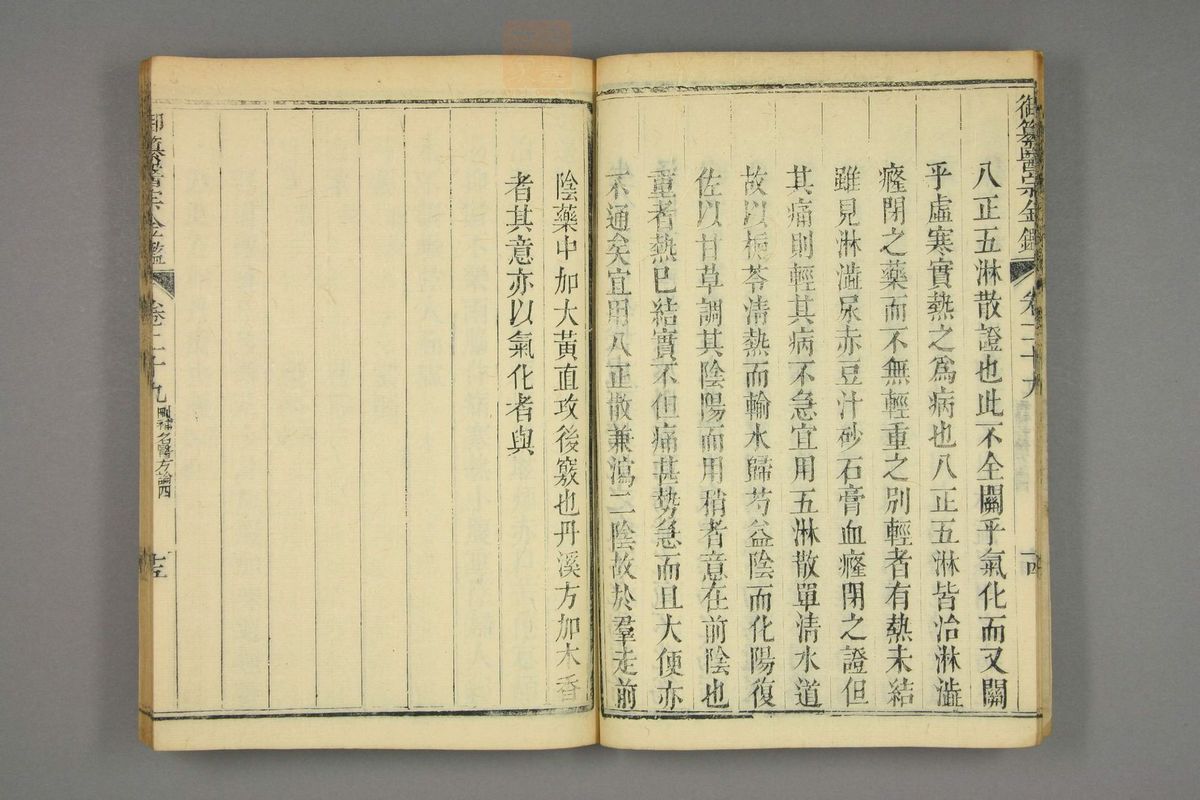 御纂醫宗金鑑 卷二十九
八正五淋散證也此不全關乎氣化而又關
乎虛寒實熱之爲病也八正五淋皆治淋澁
癃閉之藥而不無輕重之別輕者有熱未結
雖見淋澁尿赤豆汁砂石膏血癃閉之證但
其痛則輕其病不急宜用五淋散單清水道
故以梔苓清熱而輸水歸芍益陰而化陽復
佐以甘草調其陰陽而用稍者意在前陰也
重者熱已結實不但痛甚勢急而且大便亦
不通矣宜用八正散兼瀉二陰故於羣走前
陰藥中加大黃直攻後竅也丹溪方加木香
者其意亦以氣化者與
御纂醫宗金鑑 卷二十九 刪補名醫方論四 十五